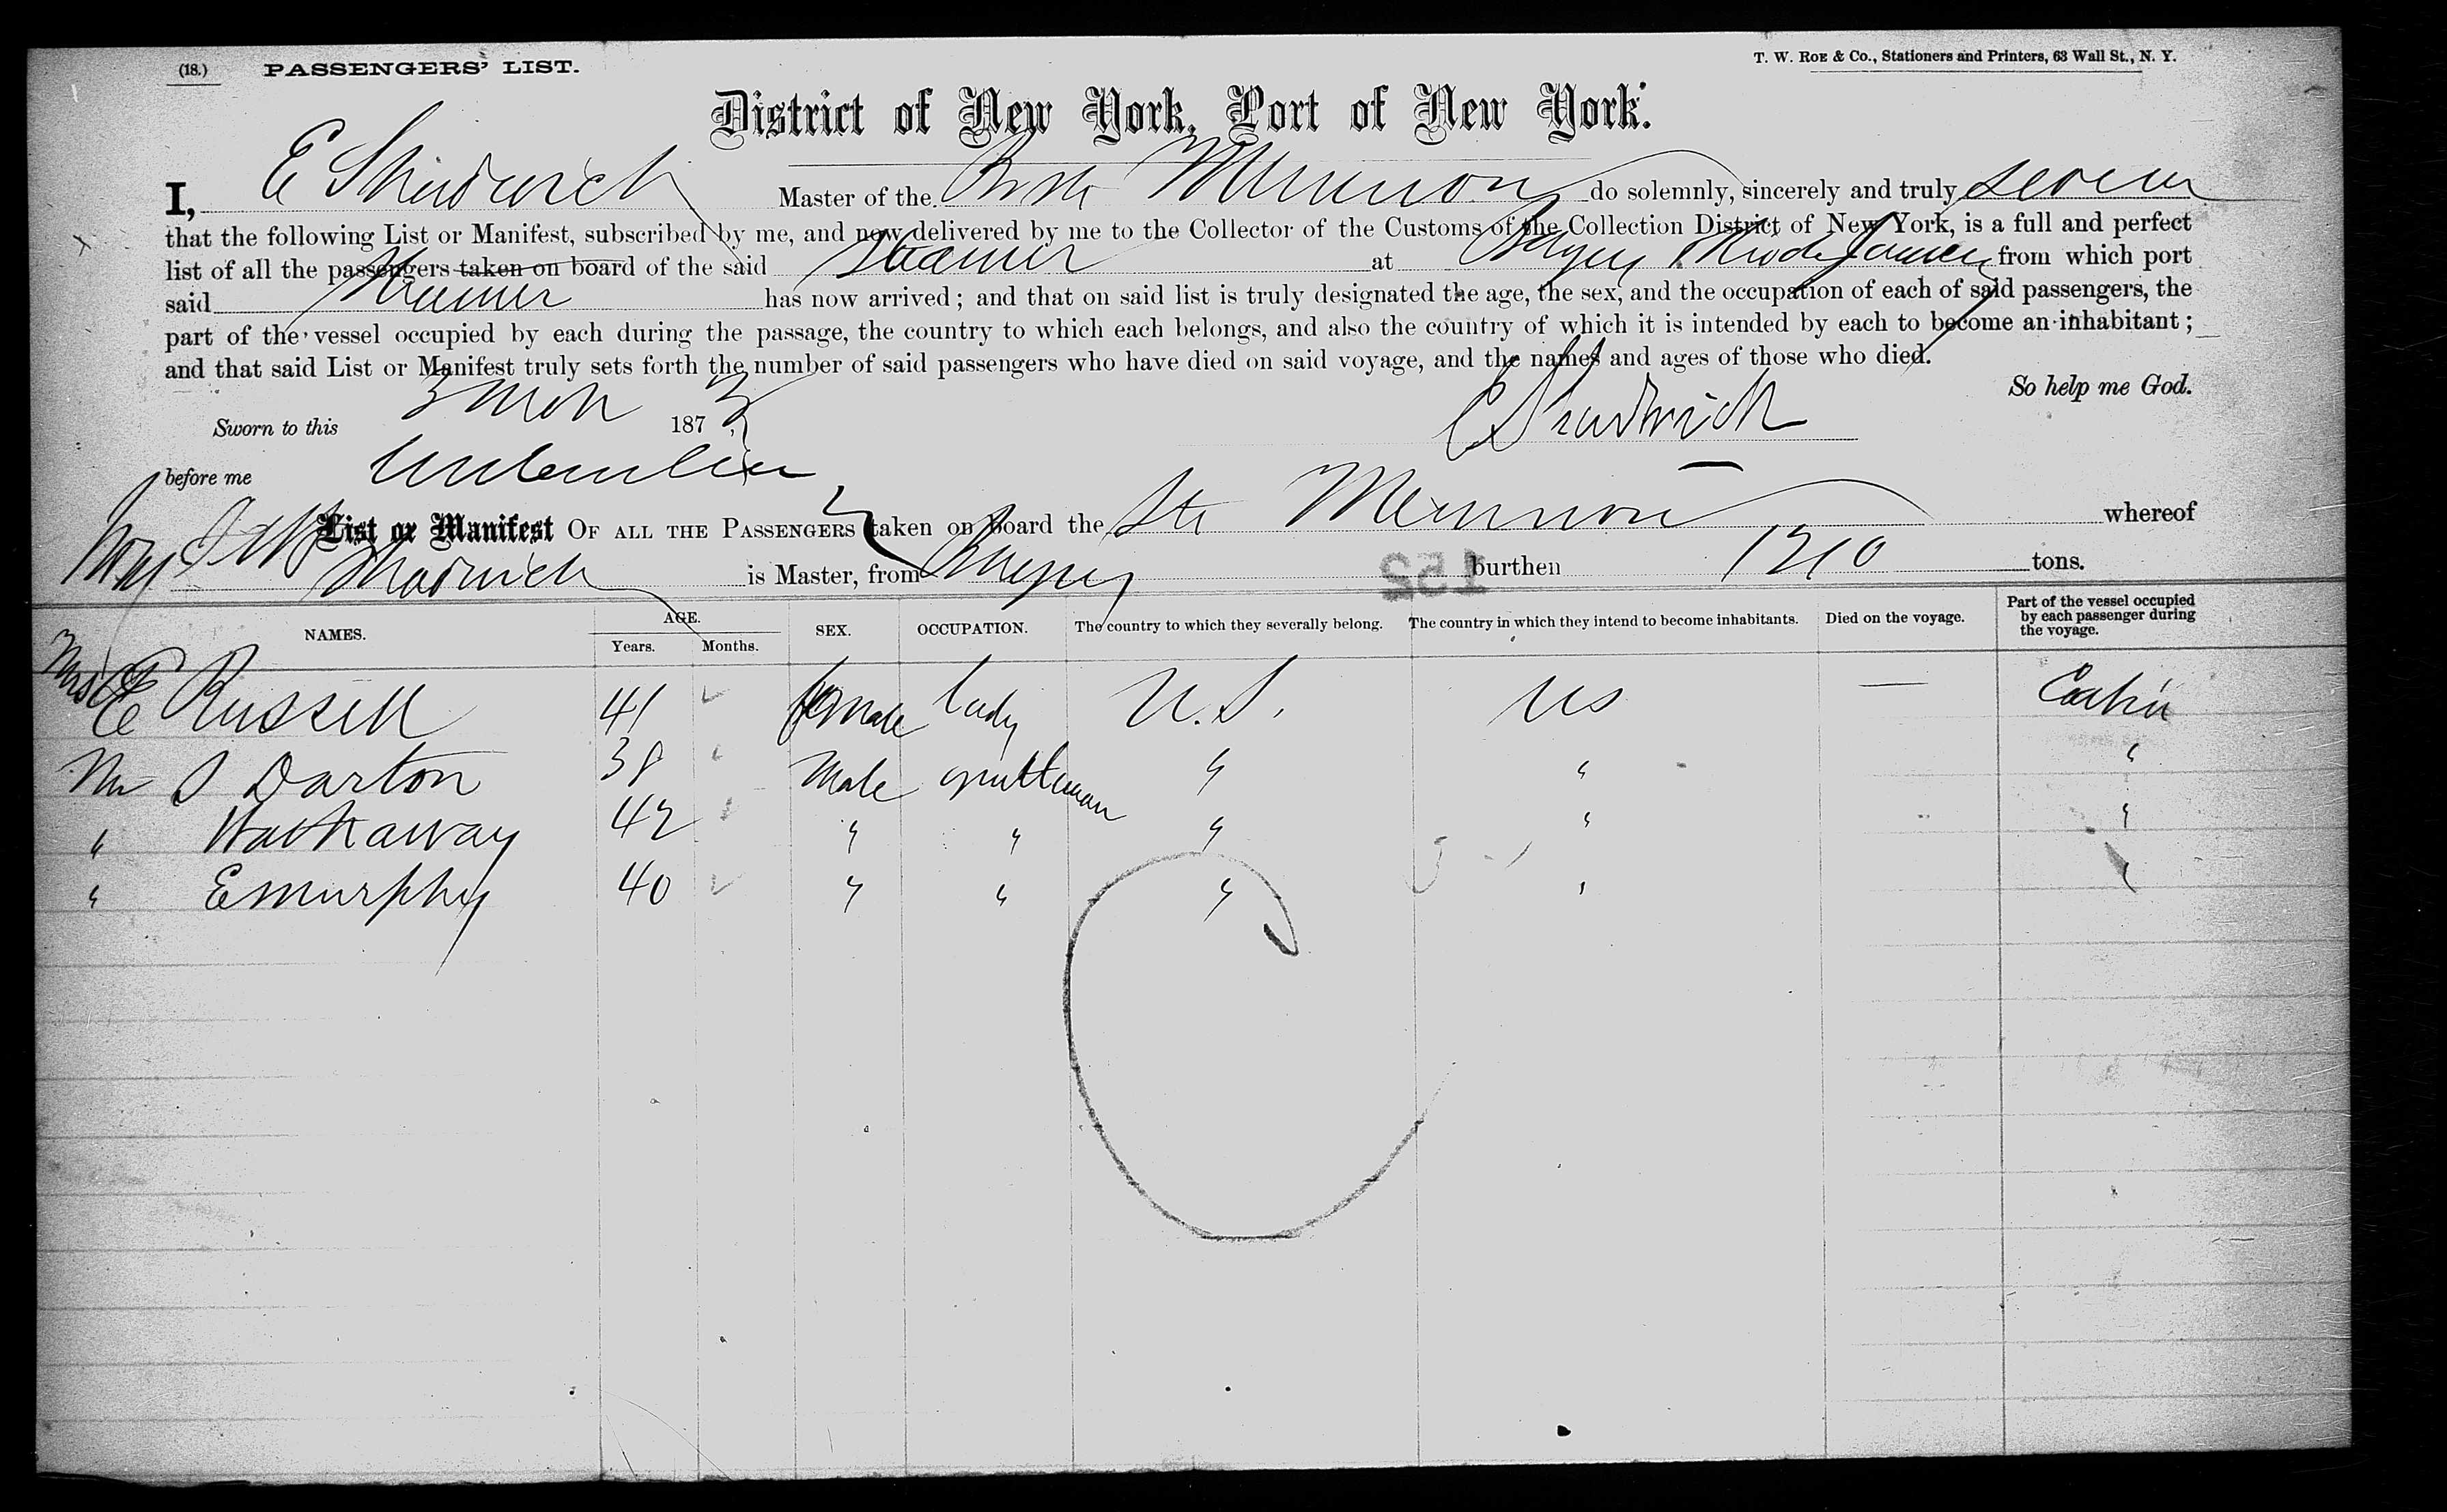 (18.) PASSENGERS' LIST.
T. W. ROE & Co., Stationers and Printers, 63 Wall St., N. Y.
District of New York, Port of New York.
I, E Master of the Memnon do solemnly, sincerely and truly swear
that the following List or Manifest, subscribed by me, and now delivered by me to the Collector of the Customs of the Collection District of New York, is a full and perfect
list of all the passengers taken on board of the said Steamer at from which port
said Steamer has now arrived; and that on said list is truly designated the age, the sex, and the occupation of each of said passengers, the
part of the vessel occupied by each during the passage, the country to which each belongs, and also the country of which it is intended by each to become an inhabitant;
and that said List or Manifest truly sets forth the number of said passengers who have died on said voyage, and the names and ages of those who died.
So help me God.
Sworn to this 3 1873
before me
List or Manifest OF ALL THE PASSENGERS taken on board the Str Memnon whereof
is Master, from burthen 1210 tons.
152
NAMES. AGE. Years. Months. SEX. OCCUPATION. The country to which they severally belong. The country in which they intend to become inhabitants. Died on the voyage. Part of the vessel occupied by each passenger during the voyage.
Mrs E Russell 41 female lady U.S. US — Cabin
Mr S Darton 38 Male gentleman " " "
" Hathaway 42 " " " " "
" E Murphy 40 " " " " "